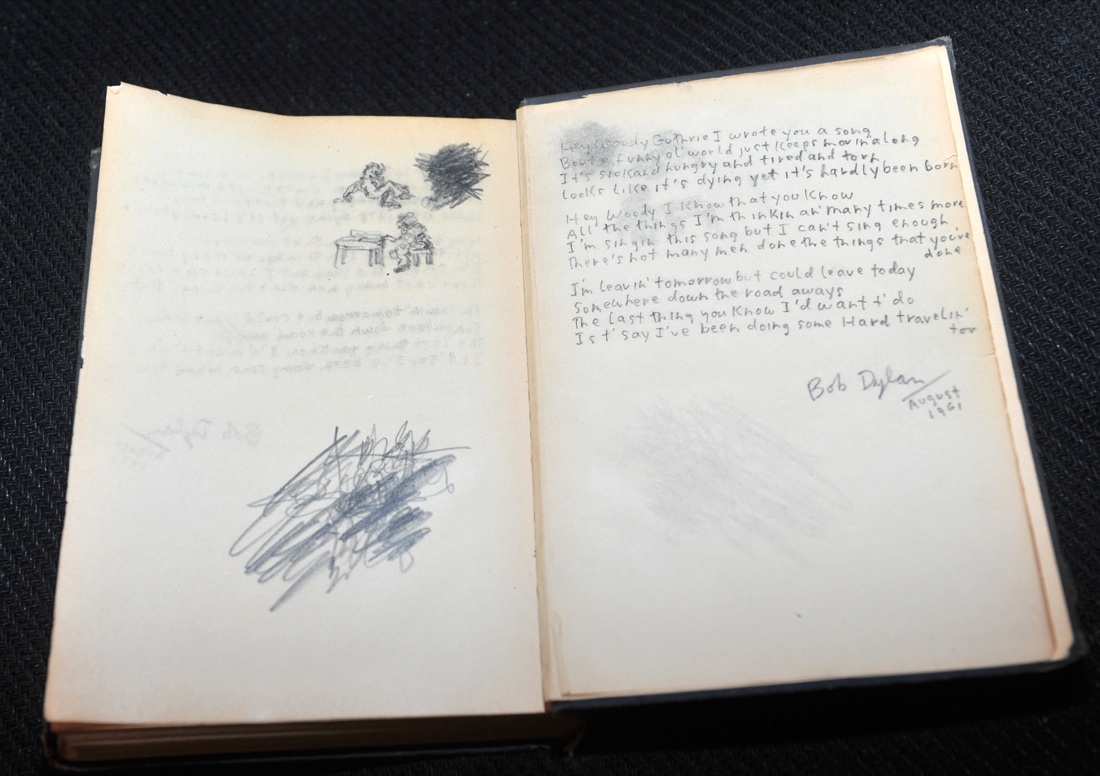 Hey Woody Guthrie I wrote you a song
Bout a funny ol' world just keeps movin along
It's sick and hungry and tired and torn
looks like it's dying yet it's hardly been born
Hey Woody I know that you know
All the things I'm thinkin an' many times more
I'm singin this song but I can't sing enough
There's not many men done the things that you've
done
I'm leavin' tomorrow but could leave today
Somewhere down the road aways
The last thing you know I'd want t' do
Is t' say I've been doing some Hard travelin'
too
Bob Dylan/
August
1961